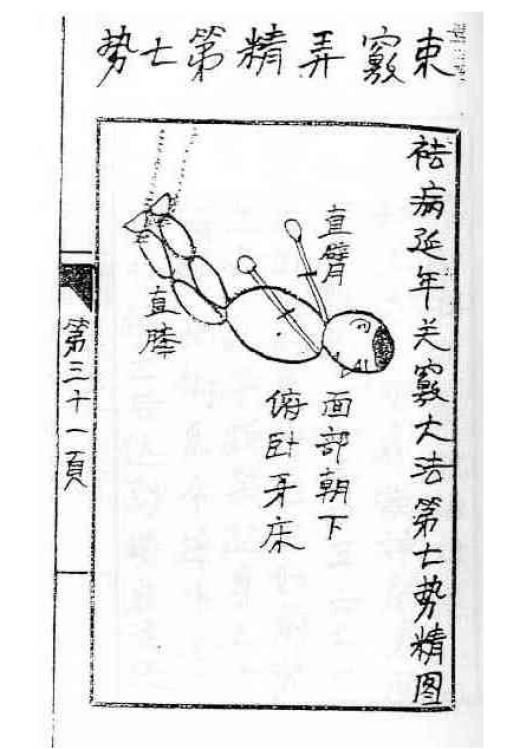 束竅弄精第七势
祛病延年关竅大法第七势精图
直臂
直膝
面部朝下
俯卧牙床
第三十一頁